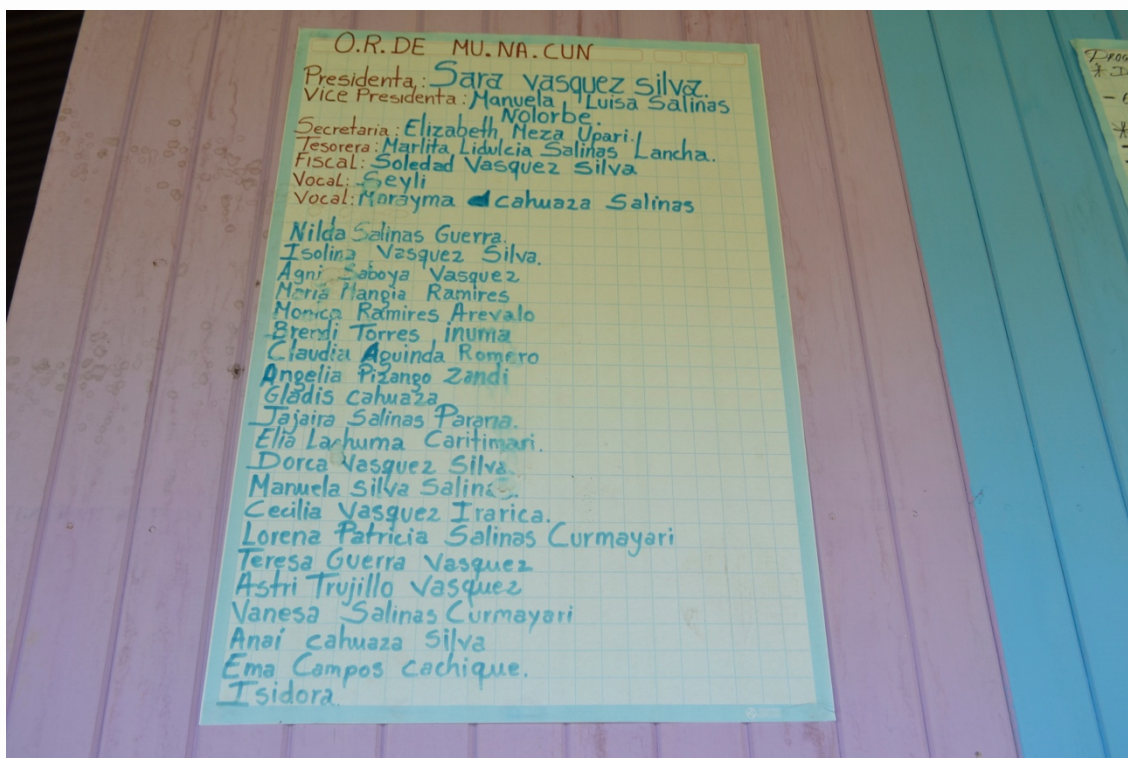 O.R.DE MU.NA.CUN
Presidenta: Sara Vasquez Silva.
Vice Presidenta: Manuela Luisa Salinas
Nolorbe.
Secretaria: Elizabeth Meza Upari.
Tesorera: Marlita Lidulcia Salinas Lancha.
Fiscal: Soledad Vasquez Silva
Vocal: Seyli
Vocal: Morayma cahuaza Salinas
Nilda Salinas Guerra.
Isolina Vasquez Silva.
Agni Saboya Vasquez
Maria Mangia Ramires
Monica Ramires Arevalo
Brendi Torres inuma
Claudia Aguinda Romero
Angelia Pizango Zandi
Gladis cahuaza
Jajaira Salinas Parana.
Elia Lachuma Caritimari.
Dorca Vasquez Silva.
Manuela Silva Salinas.
Cecilia Vasquez Irarica.
Lorena Patricia Salinas Curmayari
Teresa Guerra Vasquez
Astri Trujillo Vasquez
Vanesa Salinas Curmayari
Anaí cahuaza Silva
Ema Campos cachique.
Isidora